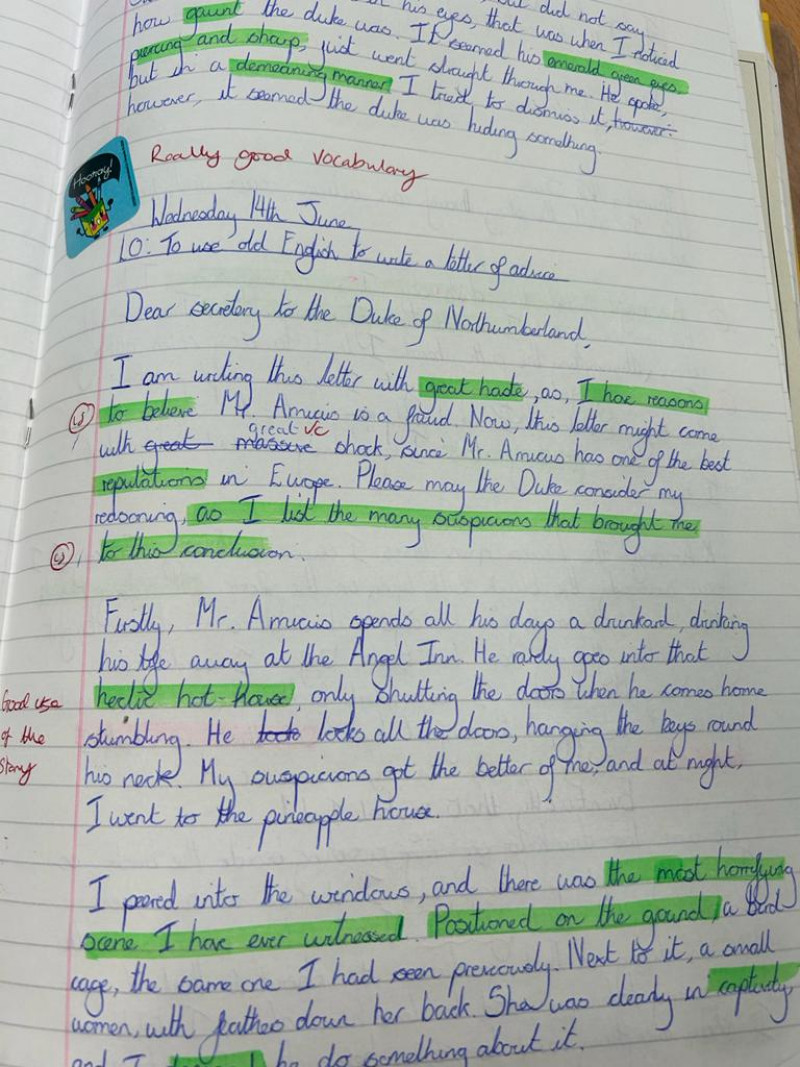 his eyes, but did not say
how gaunt the duke was. It seemed his that was when I noticed
piercing and sharp, just went straight through me. He spoke, emerald green eyes
but in a demeaning manner I tried to dismiss it, however
however, it seemed the duke was hiding something.
Hooray!
Really good vocabulary
Wednesday 14th June
LO: To use old English to write a letter of advice
Dear secretary to the Duke of Northumberland,
I am writing this letter with great haste, as, I have reasons
to believe Mr. Amicus is a fraud. Now, this letter might come
great VC
with great massive shock, since Mr. Amicus has one of the best
reputations in Europe. Please may the Duke consider my
reasoning, as I list the many suspicions that brought me
to this conclusion.
Firstly, Mr. Amicus spends all his days a drunkard, drinking
his life away at the Angel Inn. He rarely goes into that
hectic hot-house, only shutting the doors when he comes home
Good use
of the
story
stumbling. He locks all the doors, hanging the keys round
his neck. My suspicions got the better of me, and at night,
I went to the pineapple house.
I peered into the windows, and there was the most horrifying
scene I have ever witnessed. Positioned on the gound, a bird
cage, the same one I had seen previously. Next to it, a small
women, with feathes down her back. She was clearly in captivity,
and I be do something about it.